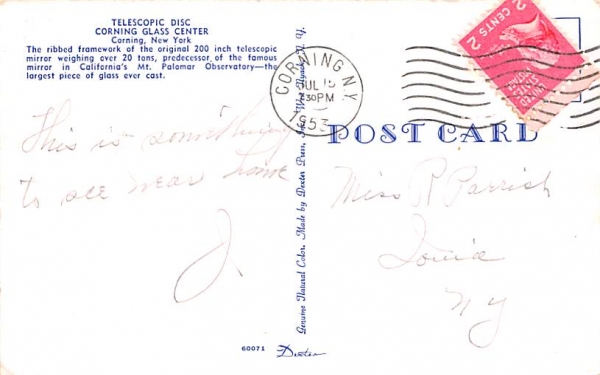 TELESCOPIC DISC
CORNING GLASS CENTER
Corning, New York
The ribbed framework of the original 200 inch telescopic
mirror weighing over 20 tons, predecessor of the famous
mirror in California's Mt. Palomar Observatory—the
largest piece of glass ever cast.
This is something
to see near home
J.
Genuine Natural Color. Made by Dexter Press, Inc. West Nyack, N. Y.
CORNING N.Y.
JUL 15
7:30 PM
1953
2 CENTS 2
UNITED
STATES
POSTAGE
POST CARD
Miss R Parrish
Ionia
NY
60071
Dexter